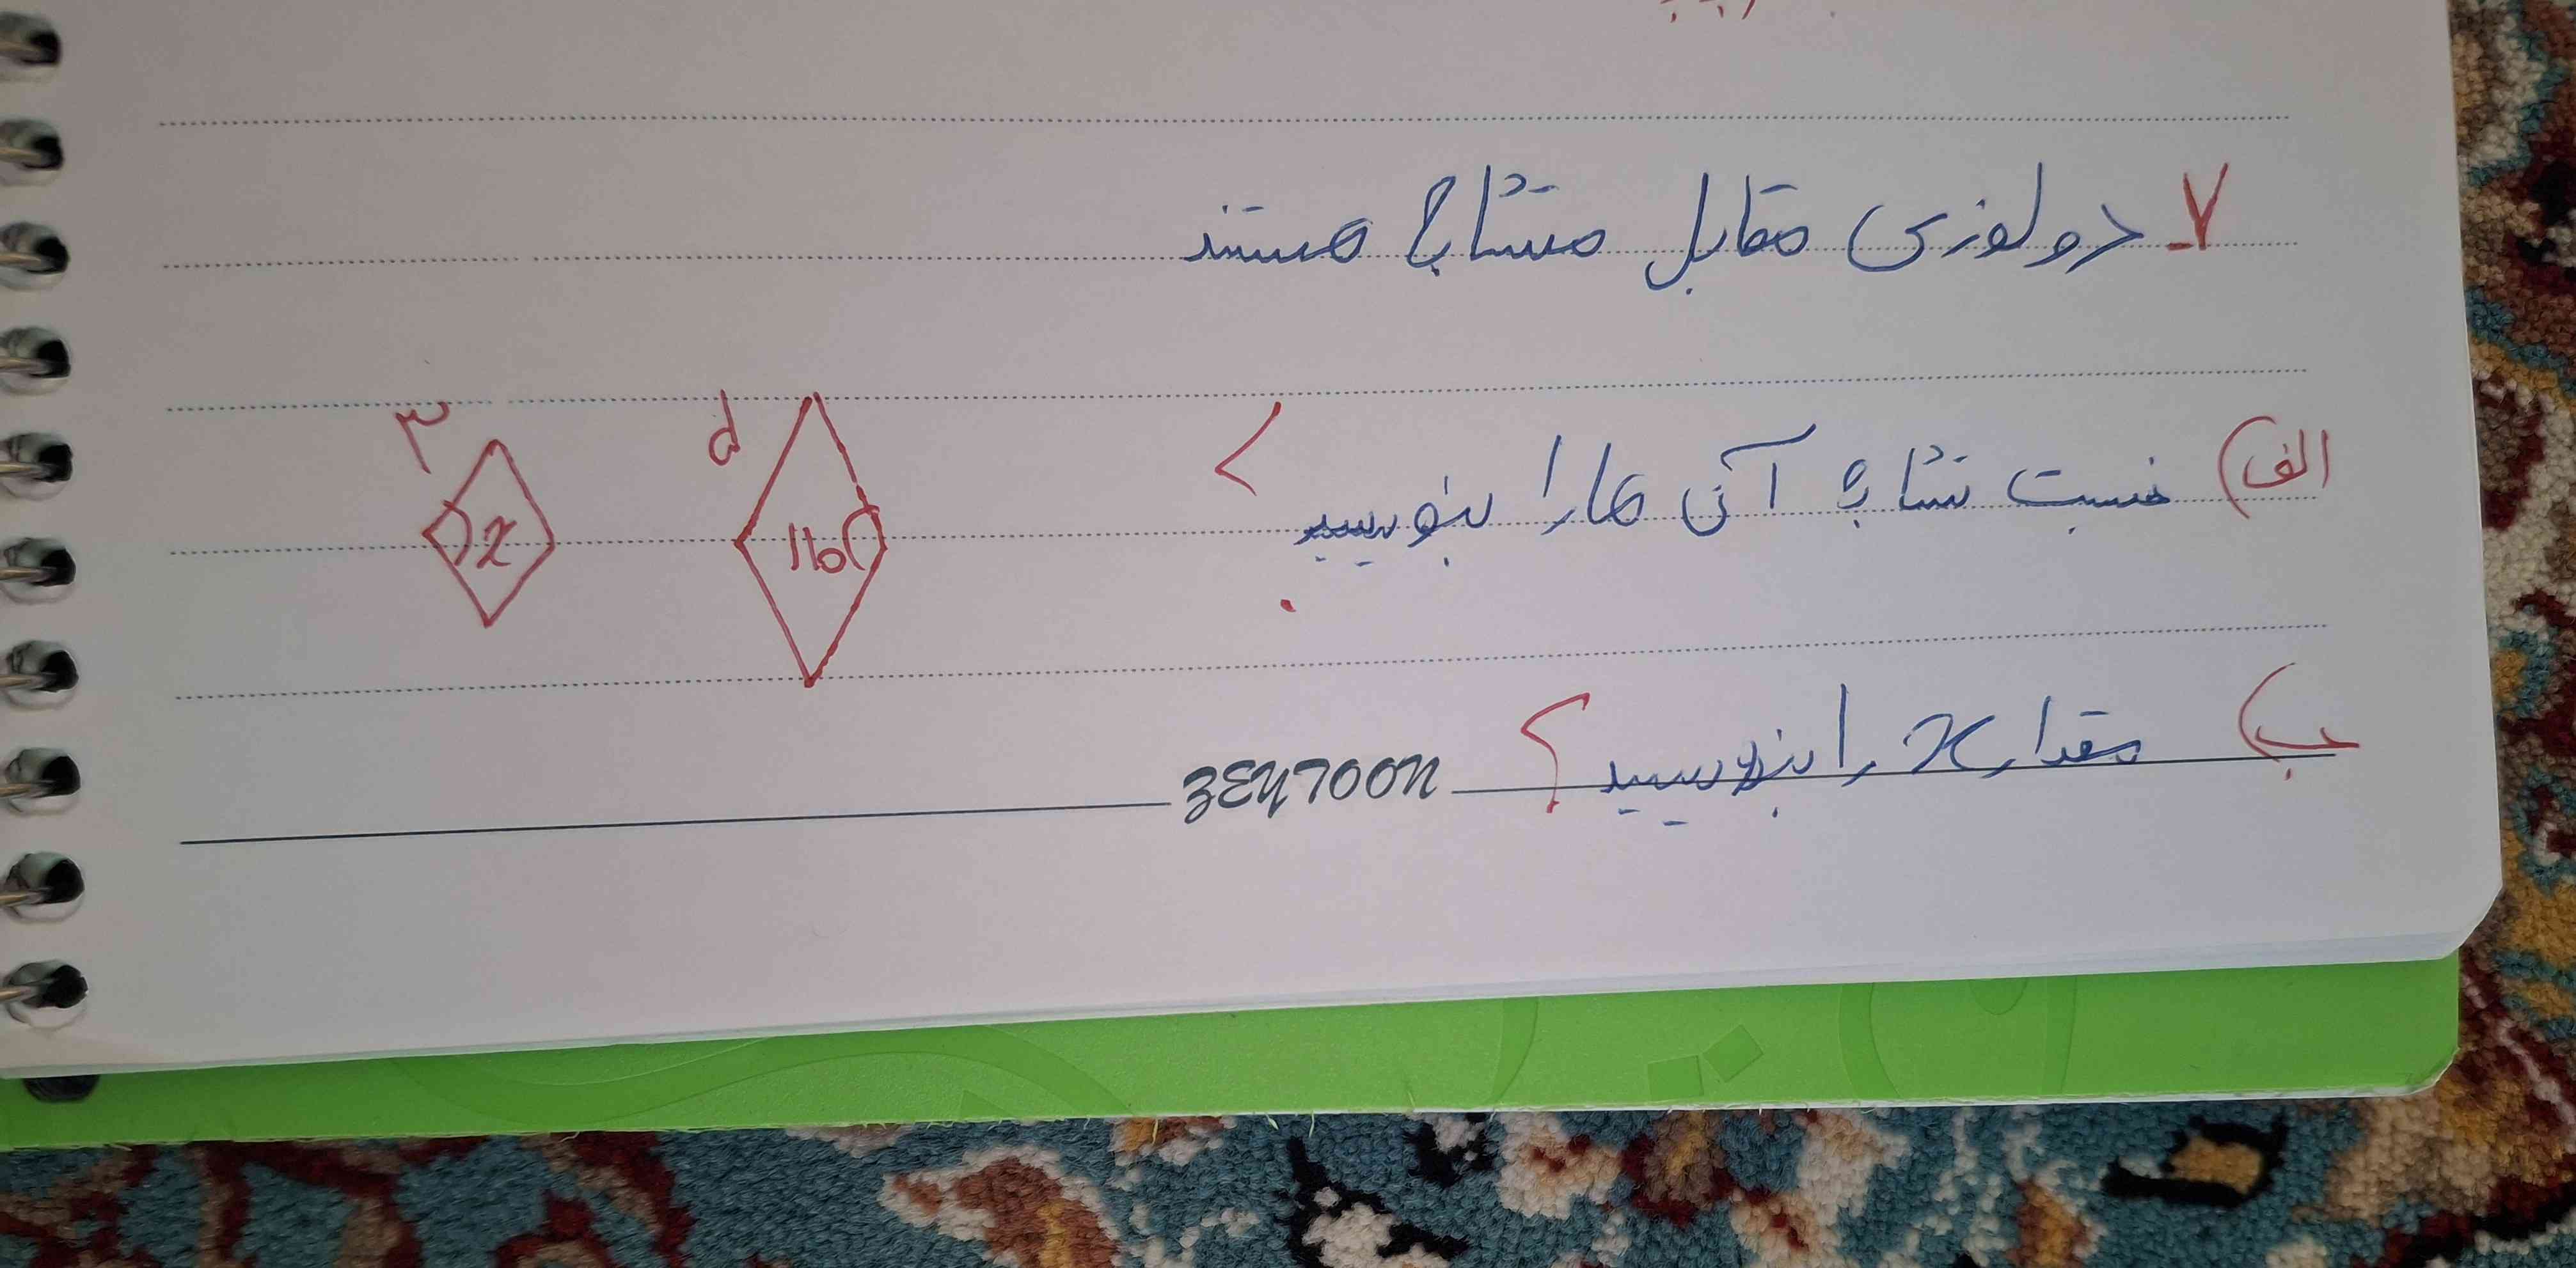 ۷ـ دو لوزی مقابل متشابه هستند
الف) نسبت تشابه آن ها را بنویسید؟
۳
۵
x
۱۱۵
ب) مقدار x را بنویسید؟
ZEYTOON